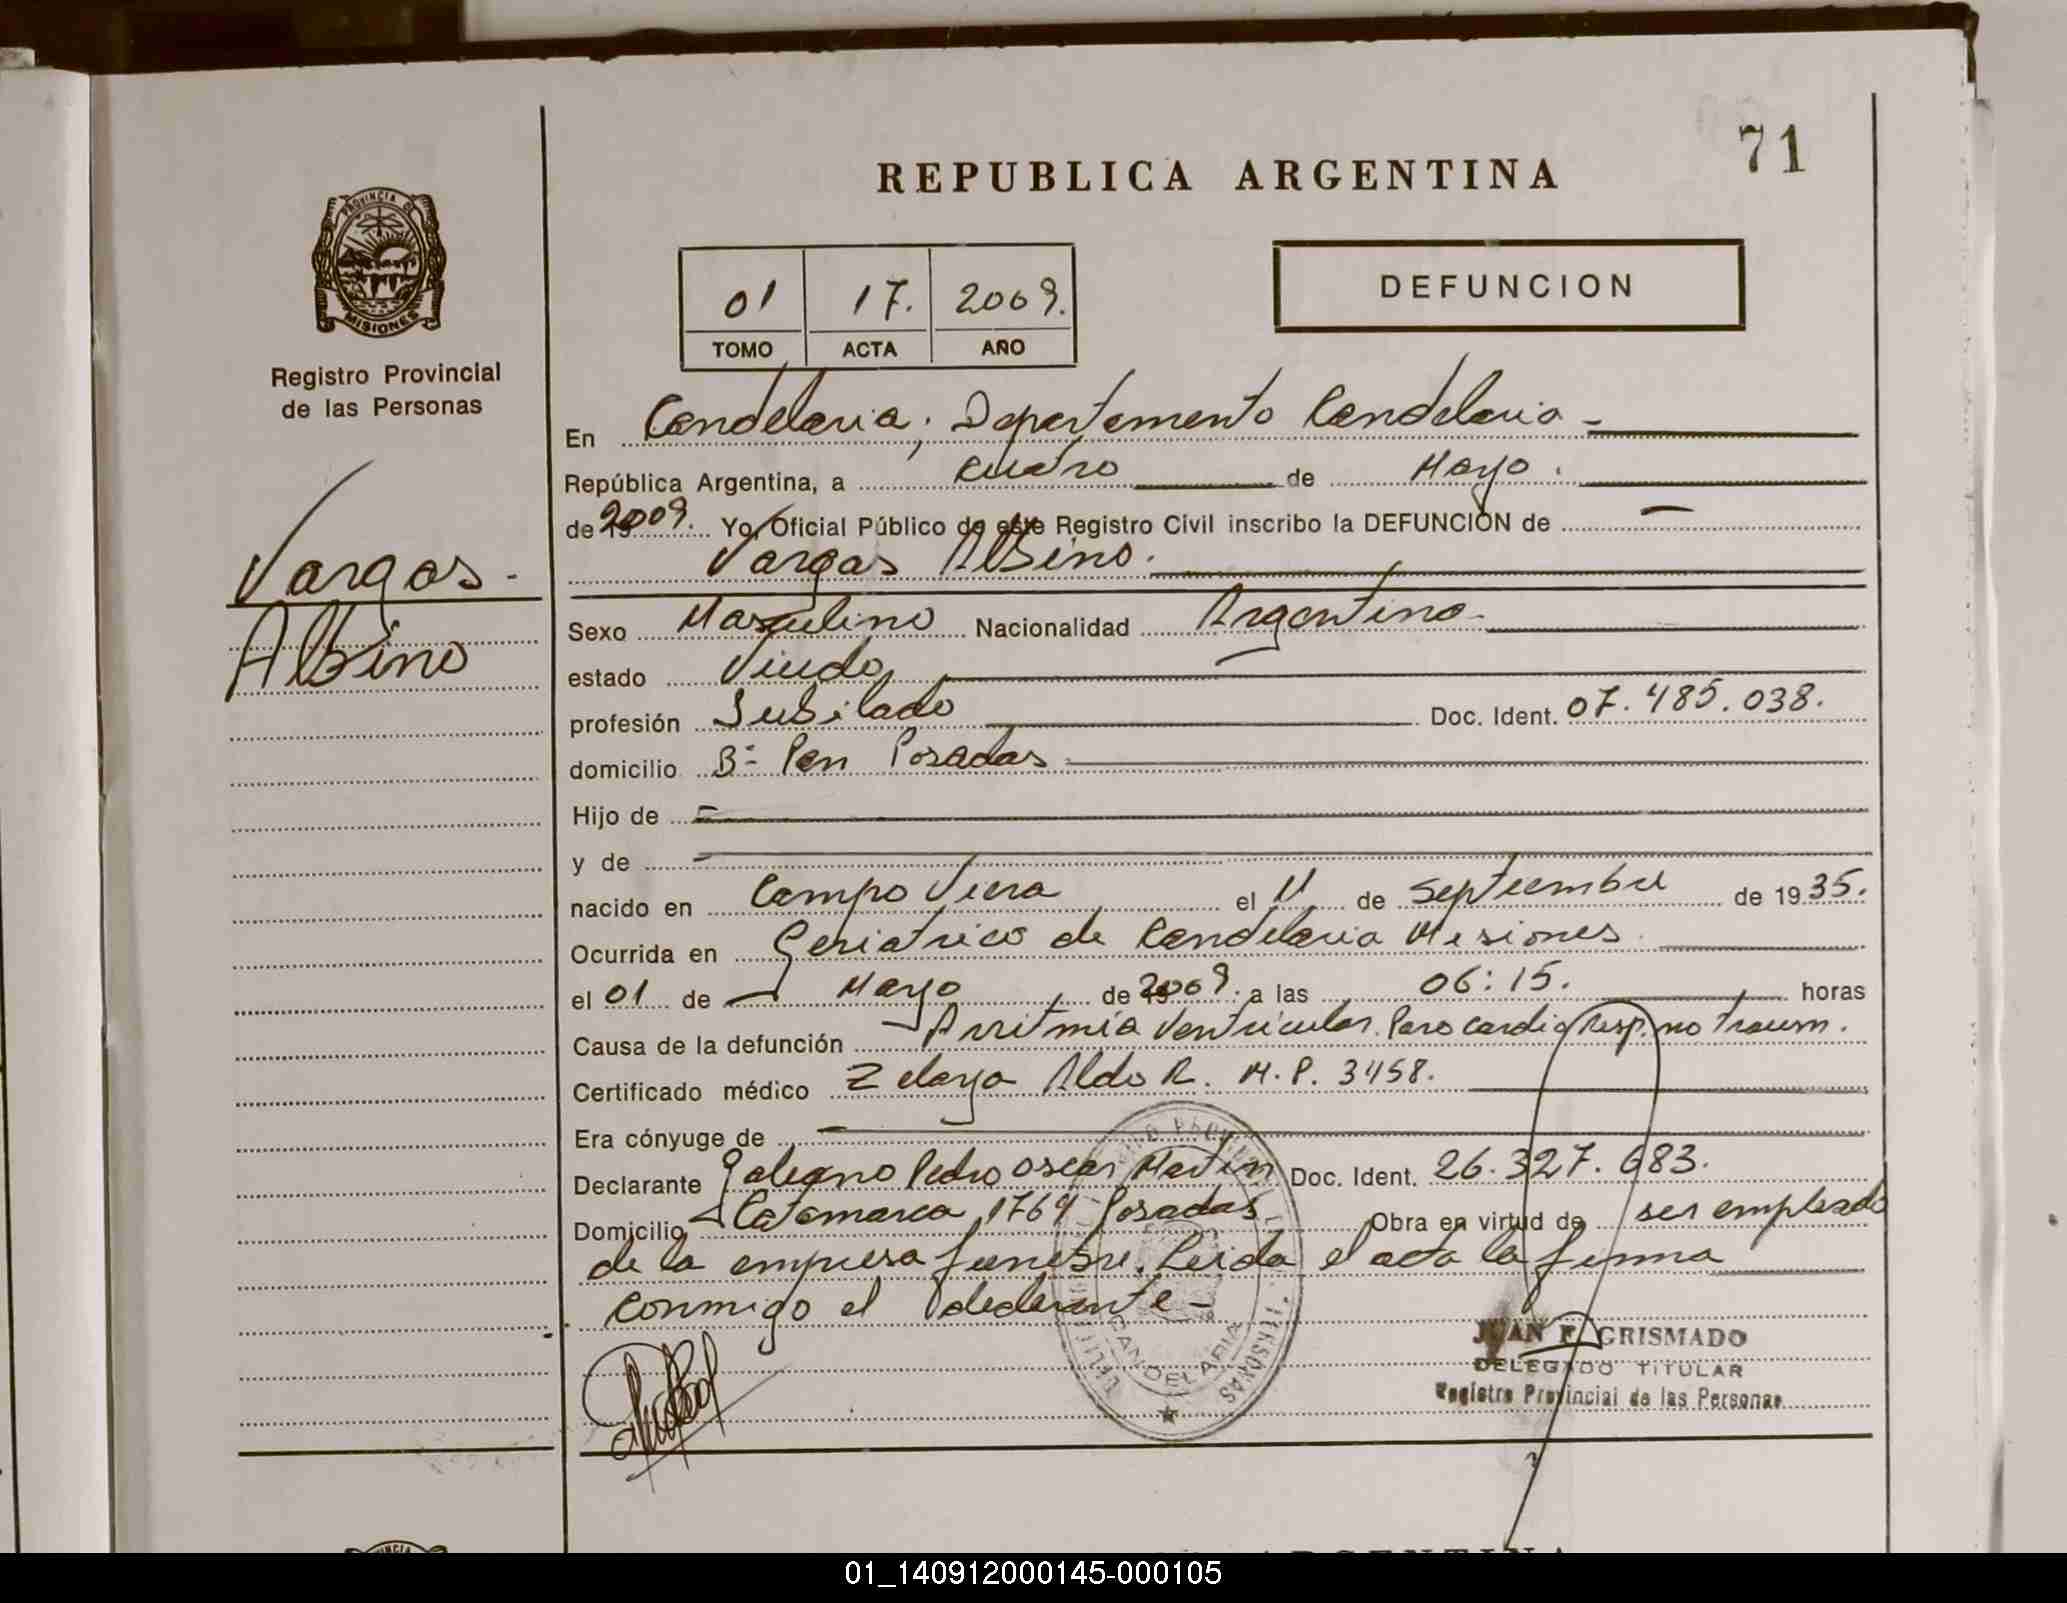 71
REPUBLICA ARGENTINA
PROVINCIA DE
MISIONES
Registro Provincial
de las Personas
01 17. 2009.
TOMO ACTA AÑO
DEFUNCION
Vargas -
Albino
En Candelaria, Departamento Candelaria -
República Argentina, a cuatro de Mayo.
de 2009. Yo, Oficial Público de este Registro Civil inscribo la DEFUNCIÓN de —
Vargas Albino.
Sexo Masculino Nacionalidad Argentino -
estado Viudo
profesión Jubilado Doc. Ident. 07.485.038.
domicilio Bº Pen Posadas
Hijo de —
y de —
nacido en Campo Viera el 11 de Septiembre de 1935.
Ocurrida en Geriatrico de Candelaria Misiones
el 01 de Mayo de 2009. a las 06:15. horas
Causa de la defunción Arritmia Ventricular. Paro cardio Resp. no traum.
Certificado médico Zelaya Aldo R. M.P. 3458.
Era cónyuge de —
Declarante Galeano Pedro Oscar Martin Doc. Ident. 26.327.683.
Domicilio Catamarca 1764 Posadas Obra en virtud de ser empleado
de la empresa funebre. Leida el acta la firma
conmigo el declarante -
CANDELARIA
JUAN F. GRISMADO
DELEGADO TITULAR
Registro Provincial de las Personas
ARGENTINA
01_140912000145-000105